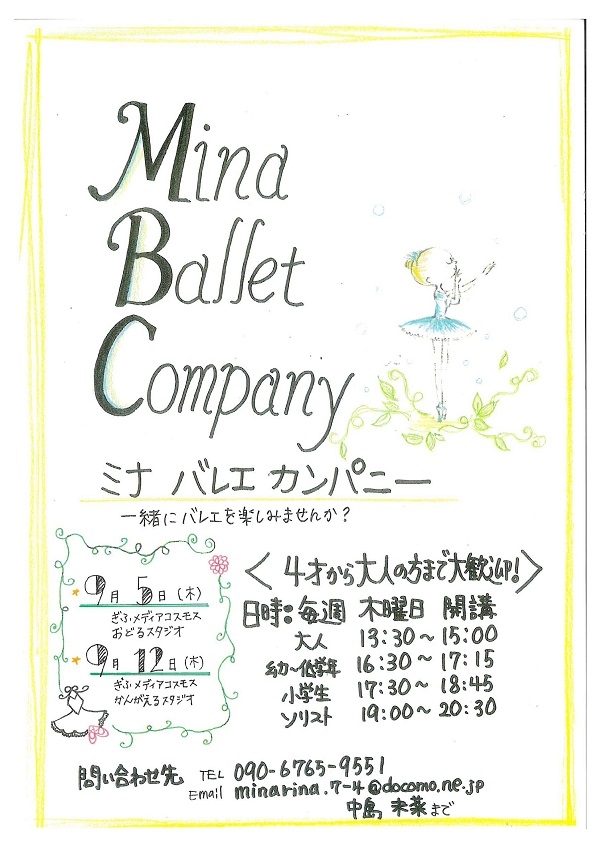 Mina
Ballet
Company
ミナ バレエ カンパニー
一緒にバレエを楽しみませんか？
9月 5日(木)
ぎふメディアコスモス
おどるスタジオ
9月 12日(木)
ぎふメディアコスモス
かんがえるスタジオ
〈 4才から大人の方まで大歓迎! 〉
日時:毎週 木曜日 開講
大人 13:30〜15:00
幼〜低学年 16:30〜17:15
小学生 17:30〜18:45
ソリスト 19:00〜20:30
問い合わせ先 TEL 090-6765-9551
Email minarina.7-4@docomo.ne.jp
中島 未菜まで